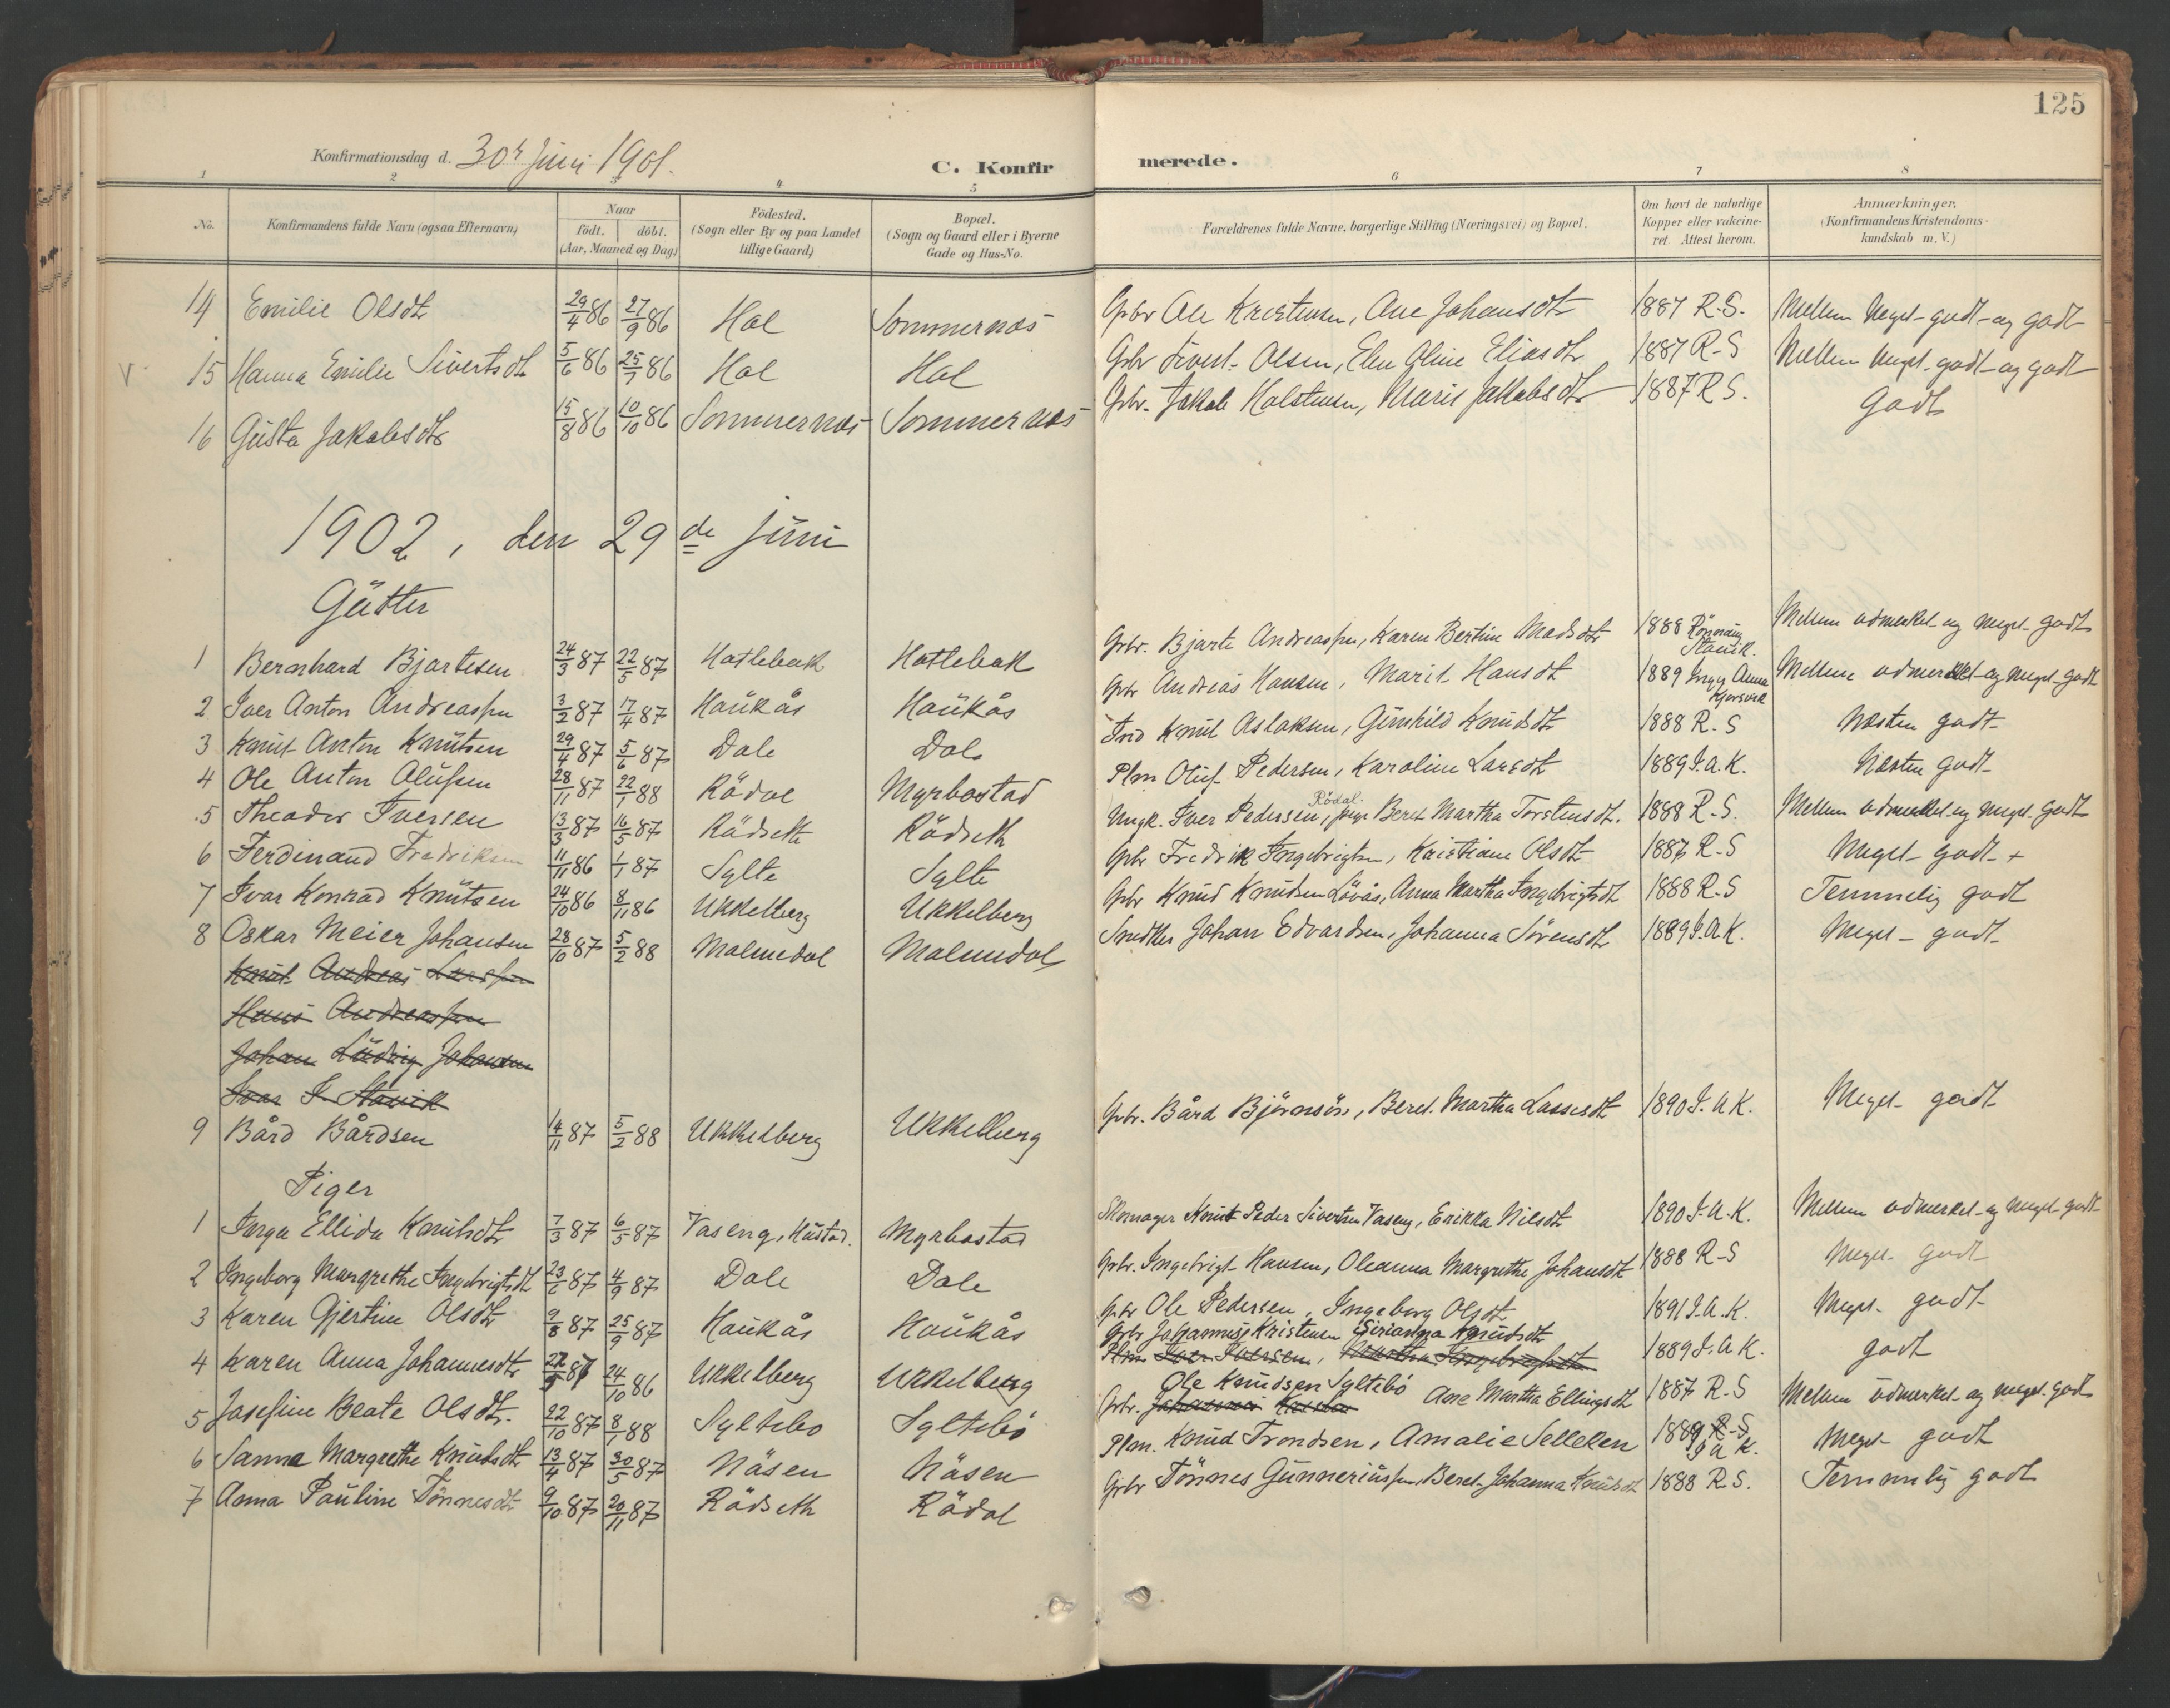 125
Konfirmationsdag d. 30te Juni 1901.
C. Konfirmerede.
1 2 3 4 5 6 7 8
No. | Konfirmandens fulde Navn (ogsaa Efternavn) | Naar födt. döbt. (Aar, Maaned og Dag) | Födested. (Sogn eller By og paa Landet tillige Gaard) | Bopæl. (Sogn og Gaard eller i Byerne Gade og Hus-No. | Forældrenes fulde Navne, borgerlige Stilling (Næringsvei) og Bopæl. | Om havt de naturlige Kopper eller vakcineret. Attest herom. | Anmærkninger, (Konfirmandens Kristendomskundskab m. V.)
14 Emilie Olsdtr 29/4 86 27/9 86 Hol Sommernæs Gbr Ole Kristensen, Ane Johansdtr 1887 R.S. Mellem Meget godt og godt
V. 15 Hanna Emilie Sivertsdtr 5/6 86 25/7 86 Hol Hol Gbr Sivert Olsen, Elen Oline Eliasdtr 1887 R.S Mellem Meget godt og godt
16 Gusta Jakobsdtr 15/8 86 10/10 86 Sommernæs Sommernæs Gbr. Jakob Holstensen, Marit Jakobsdtr 1887 R.S. Godt
1902, den 29de Juni
Gutter
1 Bernhard Bjartesen 24/3 87 22/5 87 Hatlebak Hatlebak Gbr. Bjarte Andreassen, Karen Bertine Madsdtr 1888 Rönnaug Stavik. Mellem udmerket og meget godt
2 Iver Anton Andreassen 3/2 87 17/4 87 Haukås Haukås Gbr Andreas Hansen, Marit Hansdtr 1889 Inger Anna Mellem udmerket og meget godt
3 Knut Anton Knutsen 29/4 87 5/6 87 Dale Dale Knut Aslaksen, Gunhild Knutsdtr 1888 R.S Næsten godt
4 Ole Anton Olufsen 28/11 87 22/1 88 Rödal Myrbostad Plm Oluf Pedersen, Karoline Larsdtr 1889 I.A.K. Næsten godt
5 Theodor Iversen 13/3 87 16/5 87 Rödseth Rödseth Ungk. Iver Pedersen, Rödal. pige Beret Martha Torstensdt. 1888 R.S. Mellem udmerket og meget godt
6 Ferdinand Fredriksen 11/11 86 1/1 87 Sylte Sylte Gbr Fredrik Ingebrigtsen, Kristiane Olsdtr 1887 R.S Meget godt +
7 Ivar Konrad Knutsen 24/10 86 8/11 86 Ukkelberg Ukkelberg Gbr Knud Knudsen Lövås, Anna Martha Ingebrigtsdt 1888 R.S Temmelig godt
8 Oskar Meier Johansen 28/10 87 5/2 88 Malmedal Malmedal Snedker Johan Edvardsen, Johanna Sörensdt 1889 I.A.K. Meget godt
Knut Andreas Larssen
Hans Andreassen
Johan Ludvig Johansen
Ivar I. Stavik
9 Bård Bårdsen 14/11 87 5/2 88 Ukkelberg Ukkelberg Gbr. Bård Björnsön, Beret Martha Lassesdt 1890 I.A.K. Meget godt
Piger
1 Inga Ellida Knutsdtr 7/3 87 6/5 87 Vaseng, Hustad. Myrbostad Skomager Knut Peder Sivertsen Vaseng, Erikka Nilsdt 1890 I.A.K. Mellem udmerket og meget godt
2 Ingeborg Margrethe Ingebrigtsdt 23/6 87 4/9 87 Dale Dale Gbr. Ingebrigt Hansen, Oleanna Margrethe Johansdt 1888 R.S Meget godt
3 Karen Gjertine Olsdtr 9/8 87 25/9 87 Haukås Haukås Gbr Ole Pedersen, Ingeborg Olsdtr 1891 I.A.K. Meget godt
Gbr Johannes Kristensen Sirianna Knudsdtr
4 Karen Anna Johannesdtr 87 24/10 86 Ukkelberg Ukkelberg Plm Iver Iversen, Martha Ingebrigtsdt 1889 I.A.K. godt
Ole Knudsen Syltebö
5 Josefine Beate Olsdtr. 22/10 87 8/1 88 Syltebö Syltebö Gbr. Ane Martha Ellingsdt 1887 R.S Mellem udmerket og meget godt
6 Sanna Margrethe Knutsdtr 13/4 87 30/5 87 Näsen Näsen Plm. Knud Trondsen, Amalie Selleken 1889 R.S I.A.K. Meget godt
7 Anna Pauline Tönnesdtr 9/10 87 20/11 87 Rödseth Rödal Gbr Tönnes Gunneriussen, Beret Johanna Knutsdt 1888 R.S. Temmelig godt